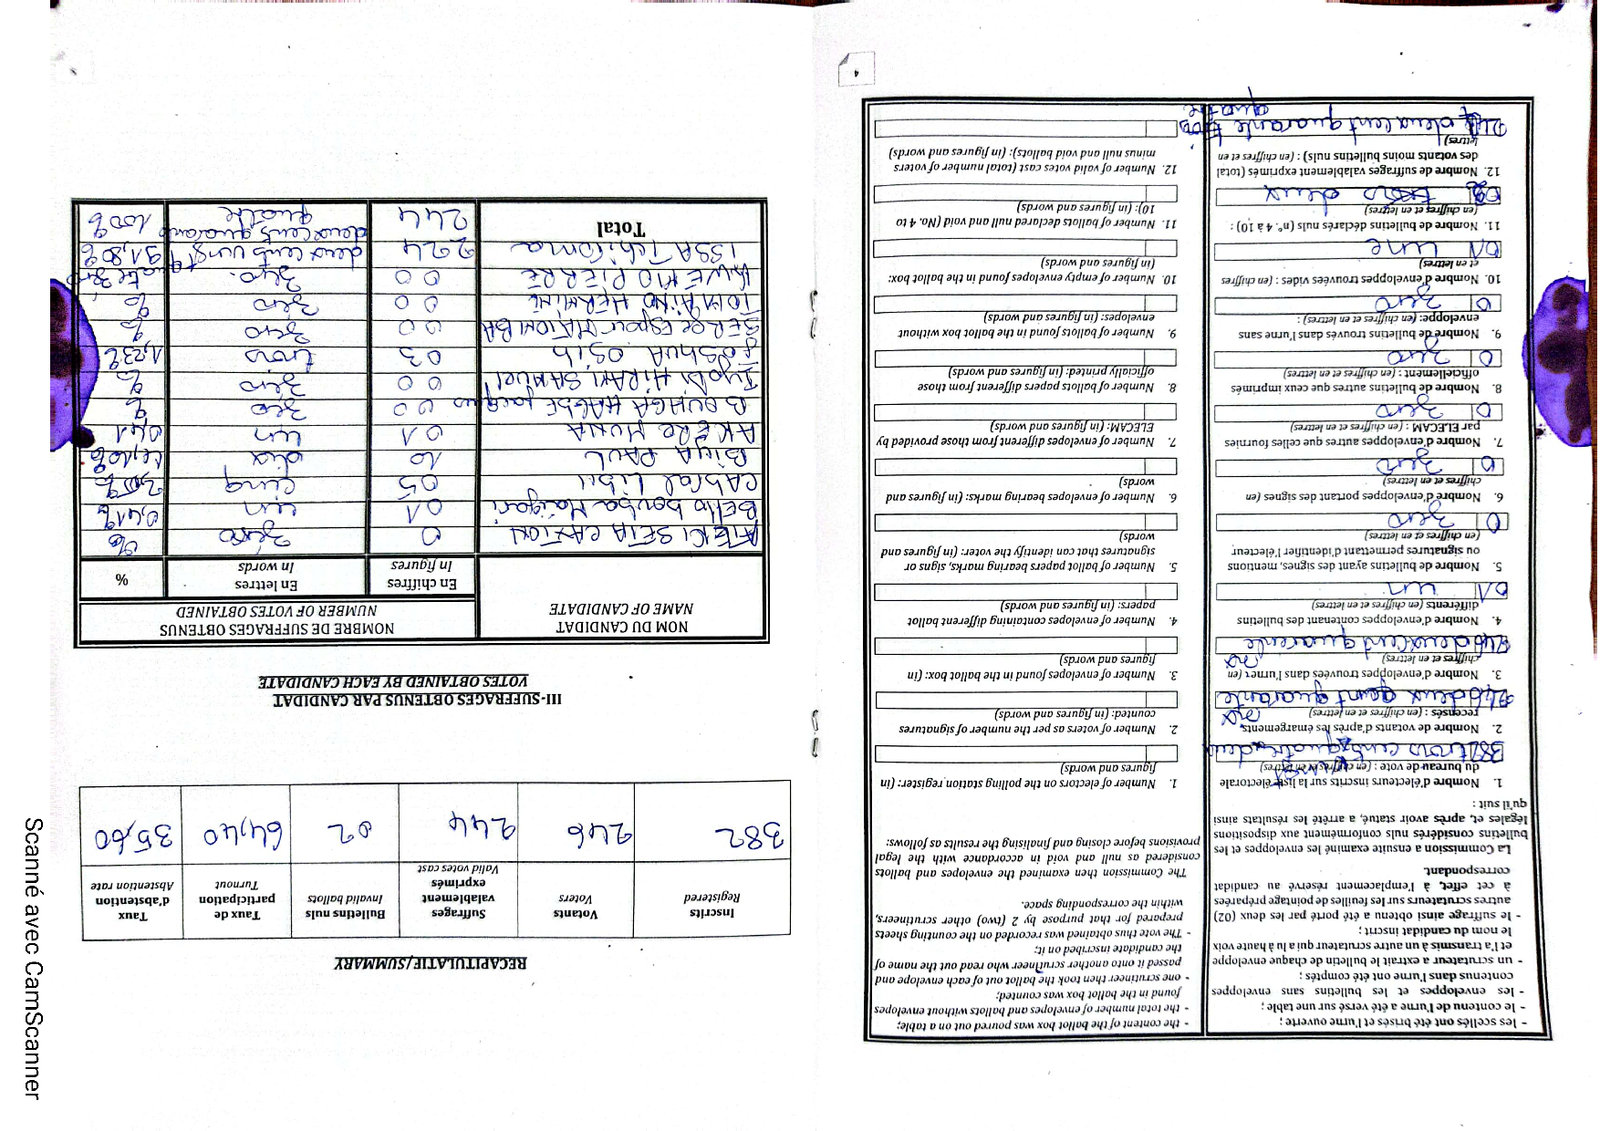 - les scellés ont été brisés et l'urne ouverte ;
- le contenu de l'urne a été versé sur une table ;
- les enveloppes et les bulletins sans enveloppes
contenus dans l'urne ont été comptés ;
- un scrutateur a extrait le bulletin de chaque enveloppe
et l'a transmis à un autre scrutateur qui a lu à haute voix
le nom du candidat inscrit ;
- le suffrage ainsi obtenu a été porté par les deux (02)
autres scrutateurs sur les feuilles de pointage préparées
à cet effet, à l'emplacement réservé au candidat
correspondant.
La Commission a ensuite examiné les enveloppes et les
bulletins considérés nuls conformément aux dispositions
légales et, après avoir statué, a arrêté les résultats ainsi
qu'il suit :
1. Nombre d'électeurs inscrits sur la liste électorale
du bureau de vote : (en chiffres et en lettres)
382 trois cent quatre deux
2. Nombre de votants d'après les émargements
recensés : (en chiffres et en lettres)
246 deux cent quarante six
3. Nombre d'enveloppes trouvées dans l'urne: (en
chiffres et en lettres)
246 deux cent quarante six
4. Nombre d'enveloppes contenant des bulletins
différents (en chiffres et en lettres)
01 un
5. Nombre de bulletins ayant des signes, mentions
ou signatures permettant d'identifier l'électeur
(en chiffres et en lettres)
0 zero
6. Nombre d'enveloppes portant des signes (en
chiffres et en lettres)
0 zero
7. Nombre d'enveloppes autres que celles fournies
par ELECAM : (en chiffres et en lettres)
0 zero
8. Nombre de bulletins autres que ceux imprimés
officiellement : (en chiffres et en lettres)
0 zero
9. Nombre de bulletins trouvés dans l'urne sans
enveloppe: (en chiffres et en lettres) :
0 zero
10. Nombre d'enveloppes trouvées vides : (en chiffres
et en lettres)
01 une
11. Nombre de bulletins déclarés nuls (n°. 4 à 10) :
(en chiffres et en lettres)
02 deux
12. Nombre de suffrages valablement exprimés (total
des votants moins bulletins nuls) : (en chiffres et en
lettres)
244 deux cent quarante quatre
- the content of the ballot box was poured out on a table;
- the total number of envelopes and ballots without envelopes
found in the ballot box was counted;
- one scrutineer then took the ballot out of each envelope and
passed it onto another scrutineer who read out the name of
the candidate inscribed on it;
- The vote thus obtained was recorded on the counting sheets
prepared for that purpose by 2 (two) other scrutineers,
within the corresponding space.
The Commission then examined the envelopes and ballots
considered as null and void in accordance with the legal
provisions before closing and finalising the results as follows:
1. Number of electors on the polling station register: (in
figures and words)
2. Number of voters as per the number of signatures
counted: (in figures and words)
3. Number of envelopes found in the ballot box: (in
figures and words)
4. Number of envelopes containing different ballot
papers: (in figures and words)
5. Number of ballot papers bearing marks, signs or
signatures that can identify the voter: (in figures and
words
6. Number of envelopes bearing marks: (in figures and
words)
7. Number of envelopes different from those provided by
ELECAM: (in figures and words)
8. Number of ballots papers different from those
officially printed: (in figures and words)
9. Number of ballots found in the ballot box without
envelopes: (in figures and words)
10. Number of empty envelopes found in the ballot box:
(in figures and words)
11. Number of ballots declared null and void (No. 4 to
10): (in figures and words)
12. Number of valid votes cast (total number of voters
minus null and void ballots): (in figures and words)
4
RECAPITULATIF/SUMMARY
Inscrits Registered | Votants Voters | Suffrages valablement exprimés Valid votes cast | Bulletins nuls Invalid ballots | Taux de participation Turnout | Taux d'abstention Abstention rate
382 | 246 | 244 | 02 | 64,40 | 35,60
III- SUFFRAGES OBTENUS PAR CANDIDAT
VOTES OBTAINED BY EACH CANDIDATE
NOM DU CANDIDAT NAME OF CANDIDATE | NOMBRE DE SUFFRAGES OBTENUS NUMBER OF VOTES OBTAINED
En chiffres In figures | En lettres In words | %
ATEKI SETA CAXTON | 0 | zéro | %
BELLO bouba Maigari | 01 | un | 0,41%
CABRAL Libii | 05 | cinq
BIYA PAUL | 10 | dix
AKERE MUNA | 01 | un | 0,41
BOUNGHA HAGBE Jacques | 00 | zero | %
Iyodi HIRAM SAMUEL | 00 | zero | %
JOSHUA OSIH | 03 | trois | 1,23%
SERGE Espoir MATOMBA | 00 | zero | %
TOMAINO HERMINE | 00 | zero | %
KWEMO PIERRE | 00 | zero
ISSA Tchiroma | 224 | deux cents vingt quatre | 91,80%
Total | 244 | deux cents quarante quatre | 100%
Scanné avec CamScanner